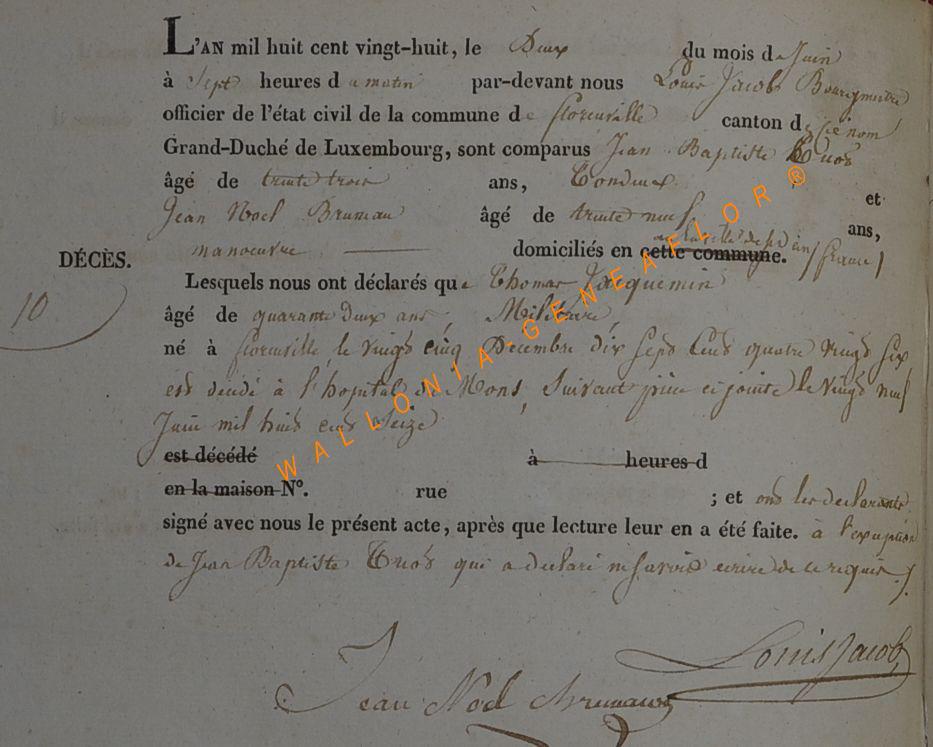 L'AN mil huit cent vingt-huit, le Deux du mois de Juin
à Sept heures du matin par-devant nous Louis Jacob Bourgmestre
officier de l'état civil de la commune de florenville canton de
Grand-Duché de Luxembourg, sont comparus Jean Baptiste
âgé de trente trois ans, et
Jean Noel Bruneau âgé de trente neuf ans,
manoeuvre domiciliés en cette commune. france
DÉCÈS.
Lesquels nous ont déclarés que Thomas Jacquemin
10
âgé de quarante deux ans, Militaire,
né à florenville le vingt cinq Decembre dix Sept Cent quatre vingt six
est decedé à l'hopital de Mons, Suivant piece ci jointe le vingt neuf
Juin mil huit cent Seize
est décédé à heures d
en la maison N°. rue ; et ont les declarants
signé avec nous le présent acte, après que lecture leur en a été faite. à l'exception
de Jean Baptiste qui a declaré ne savoir ecrire de ce requis
Louis Jacob
Jean Noel
WALLONIA-GENEAFLOR®